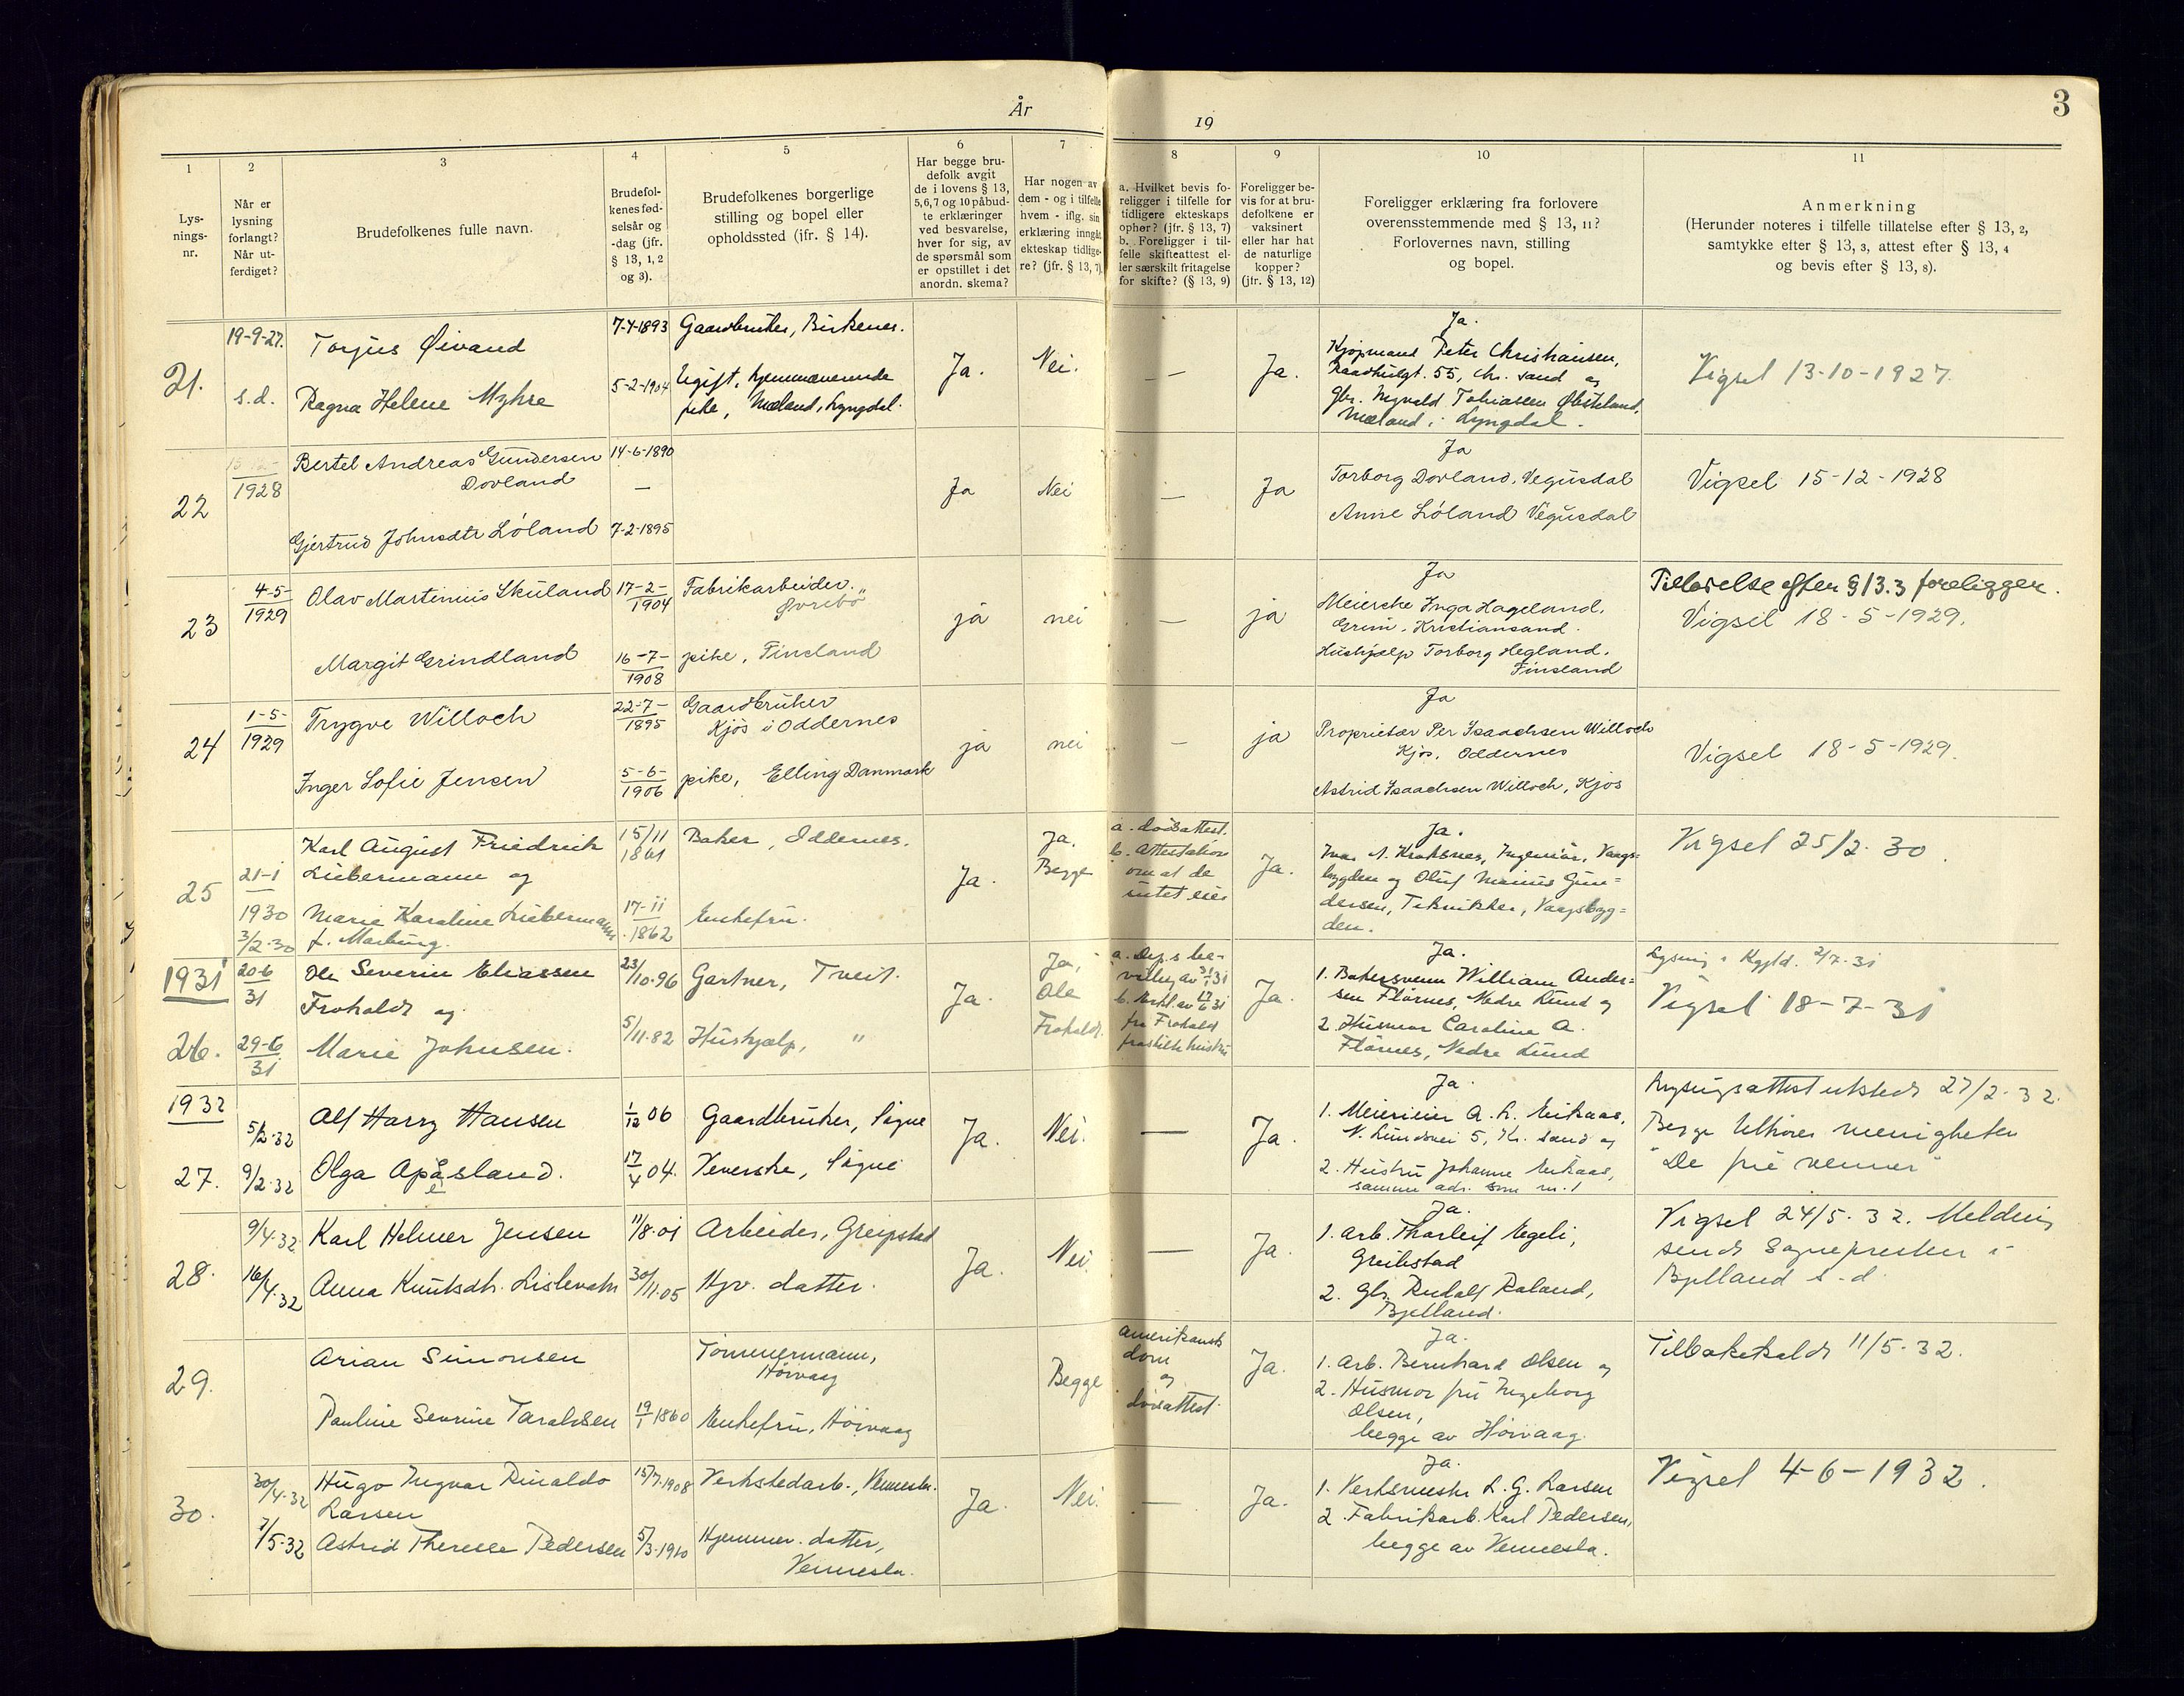 År
19
3
1
Lys-
nings-
nr.
2
Når er
lysning
forlangt?
Når ut-
ferdiget?
3
Brudefolkenes fulle navn.
4
Brudefol-
kenes fød-
selsår og
-dag (jfr.
§ 13, 1, 2
og 3).
5
Brudefolkenes borgerlige
stilling og bopel eller
opholdssted (jfr. § 14).
6
Har begge bru-
defolk avgit
de i lovens § 13,
5,6,7 og 10 påbud-
te erklæringer
ved besvarelse,
hver for sig, av
de spørsmål som
er opstillet i det
anordn. skema?
7
Har nogen av
dem - og i tilfelle
hvem - iflg. sin
erklæring inngåt
ekteskap tidlige-
re? (jfr. § 13, 7).
8
a. Hvilket bevis fo-
religger i tilfelle for
tidligere ekteskaps
ophør? (jfr. § 13, 7)
b. Foreligger i til-
felle skifteattest el-
ler særskilt fritagelse
for skifte? (§ 13, 9)
9
Foreligger be-
vis for at bru-
defolkene er
vaksinert
eller har hat
de naturlige
kopper?
(jfr. § 13, 12)
10
Foreligger erklæring fra forlovere
overensstemmende med § 13, 11?
Forlovernes navn, stilling
og bopel.
11
Anmerkning
(Herunder noteres i tilfelle tillatelse efter § 13, 2,
samtykke efter § 13, 3, attest efter § 13, 4
og bevis efter § 13, 8).
21.
19-9-27.
s.d.
Torjus Øivand
Ragna Helene Myhre
7-4-1893
5-2-1904
Gaardbruker, Birkenes.
Ugift, hjemmeværende
pike, Mæland, Lyngdal.
Ja.
Nei.
—
Ja.
Ja.
Kjøpmand Peter Christiansen,
Raadhusgt. 55, Kr. sand og
Gbr. Ingvald Tobiassen Øbstland,
Mæland i Lyngdal.
Vigsel 13-10-1927.
22
1928
Bertel Andreas Gundersen
Dovland
Gjertrud Johnsdtr Löland
14-6-1890
—
7-2-1895
Ja
Nei
—
Ja
Ja
Torborg Dovland, Vegusdal
Anne Löland Vegusdal
Vigsel 15-12-1928
23
4-5-
1929
Olav Martinius Skuland
Margit Grindland
17-2-
1904
16-7-
1908
Fabrikarbeider.
Øvrebö
pike, Finsland
ja
nei
—
ja
Ja
Meierske Inga Hageland.
Grim, Kristiansand.
Hushjælp Torborg Hegland.
Finsland
Tillatelse efter § 13.3 foreligger.
Vigsel 18-5-1929.
24
1-5-
1929
Trygve Willoch
Inger Sofie Jensen
22-7-
1895
5-6-
1906
Gaardbruker
Kjös i Oddernes
pike, Elling Danmark
ja
nei
—
ja
Ja
Proprietær Per Isaachsen Willoch
Kjos, Oddernes
Astrid Isaachsen Willoch, Kjos
Vigsel 18-5-1929.
25
21-1
1930
3/2-30
Karl August Friedrich
Liebermann og
Marie Karoline Liebermann
f. Marburg.
15/11
1861
17-11
1862
Baker, Oddernes.
Enkefru.
Ja.
Ja.
Begge
a. dödsattest.
b. Attestation
om at de
intet eier
Ja.
Ja.
Ivar N. Kroksnes, Ingeniør, Vaags-
bygden og Oluf Marius Gun-
dersen, Tekniker, Vaagsbyg-
den.
Vigsel 25/2-30.
1931
26.
20-6
31
29-6
31
Ole Severin Eliassen
Froholdt og
Marie Johnsen.
23/10-96
5/11-82
Gartner, Tveit.
Hushjælp, "
Ja.
Ja,
Ole
Froholdt.
a. Dep.s be-
villing av 31
fra Froholdt
fraskilte hustru
Ja.
Ja.
1. Bakersvenn William Ander-
sen Flörnes, Nedre Lund og
2. Husmor Caroline A.
Flörnes, Nedre Lund
Lysning i Kggld. 2/7-31
Vigsel 18-7-31
1932
27.
5/2-32
9/2-32
Alf Harry Hansen
Olga Apåsland.
e
1/12 06
17/4 04.
Gaardbruker, Sögne
Veverske, Sögne
Ja.
Nei.
—
Ja.
Ja.
1. Meierieier A. L. Eikaas,
N. Lundsvei 5, Kr. sand og
2. Hustru Johanne Eikaas,
samme adr. som nr. 1
Lysingsattest utstedt 27/2-32.
Begge tilhører menigheten
"De frie venner"
28.
9/4-32
16/4-32
Karl Helmer Jensen
Anna Knutsdtr. Lislevatn
11/8-01
30/11-05
Arbeider, Greipstad
Hjv. datter.
Ja.
Nei.
—
Ja.
Ja.
1. Arb. Tharleif Egeli,
Greibstad
2. Gbr. Rudolf Røland,
Bjelland.
Vigsel 24/5-32. Melding
sendt Sognepresten i
Bjelland s.d.
29.
Arian Simonsen
Pauline Severine Taraldsen
19/1 1860
Tömmermann,
Höivaag
Enkefru, Höivaag
Begge
amerikansk
dom
og
dödsattest.
Ja.
Ja.
1. Arb. Bernhard Olsen og
2. Husmor fru Ingeborg
Olsen,
begge av Höivaag.
Tilbakekaldt 11/5-32.
30.
30/4-32
7/5-32
Hugo Ingvar Rinaldo
Larsen
Astrid Therese Pedersen
15/7-1908
5/3-1910
Verkstedarb., Vennesla.
Hjemmev. datter,
Vennesla.
Ja.
Nei.
—
Ja.
Ja.
1. Verksmester L. G. Larsen
2. Fabrikarb. Karl Pedersen,
begge av Vennesla.
Vigsel 4-6-1932.